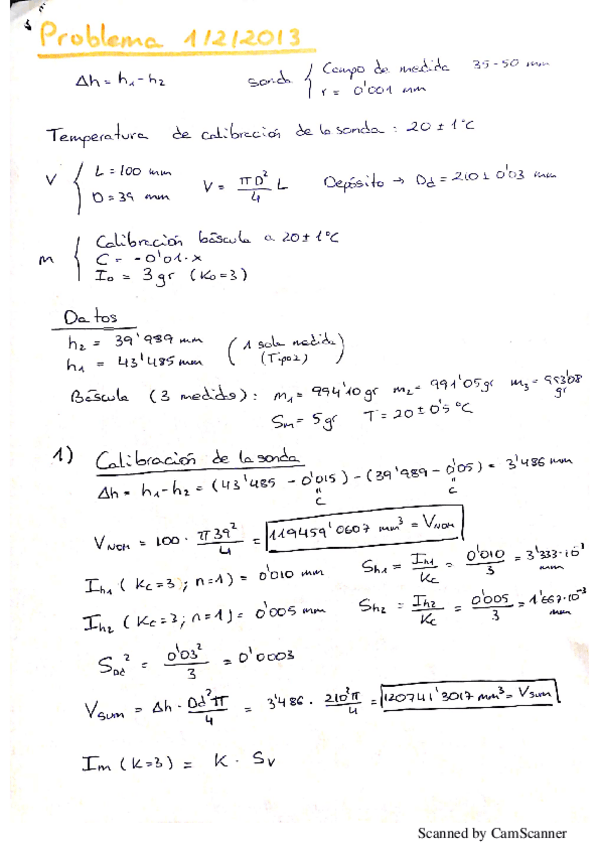 Problema 1/2/2013
Δh = h₁ - h₂ sonda { Campo de medida 35 - 50 mm
r = 0'001 mm
Temperatura de calibración de la sonda : 20 ± 1°C
V { L = 100 mm
D = 39 mm V = πD²/4 L Depósito → Dd = 210 ± 0'03 mm
m { Calibración báscula a 20 ± 1°C
C = -0'01·x
I₀ = 3 gr (K₀=3)
Datos
h₂ = 39'989 mm
h₁ = 43'485 mm (1 sola medida) (Tipo2)
Báscula (3 medidas): m₁ = 994'10 gr m₂ = 991'05 gr m₃ = 993'08 gr
Sm = 5 gr T = 20 ± 0'5 °C
1) Calibración de la sonda
Δh = h₁ - h₂ = (43'485 - 0'015) - (39'989 - 0'05) = 3'486 mm
" C " C
VNOM = 100 · π39²/4 = 119459'0607 mm³ = VNOM
Ih₁ (Kc=3; n=1) = 0'010 mm Sh₁ = Ih₁/Kc = 0'010/3 = 3'333·10⁻³ mm
Ih₂ (Kc=3; n=1) = 0'005 mm Sh₂ = Ih₂/Kc = 0'005/3 = 1'667·10⁻³ mm
SDd² = 0'03²/3 = 0'0003
VSUM = Δh · Dd²π/4 = 3'486 · 210²π/4 = 120741'3017 mm³ = VSUM
Im (K=3) = K · SV
Scanned by CamScanner